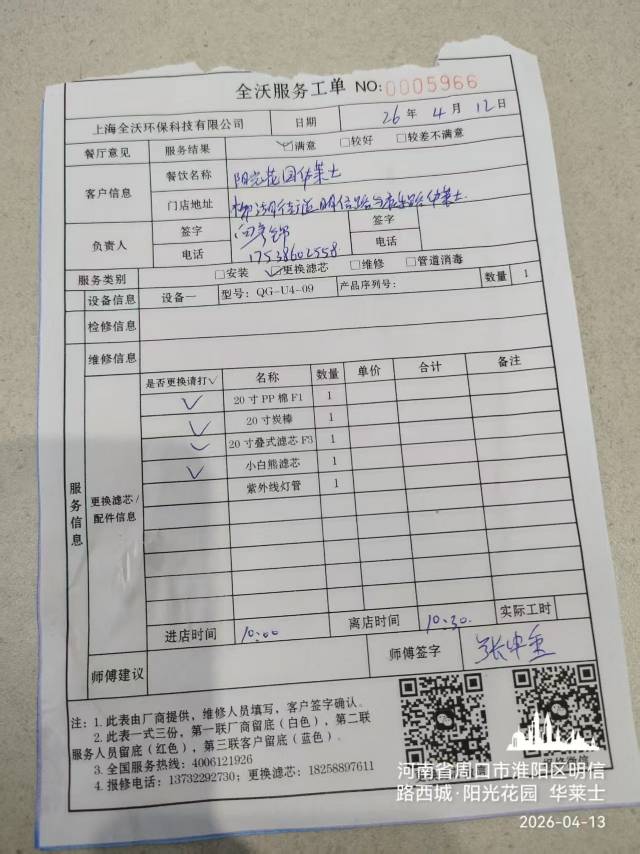 全沃服务工单 NO:0005966
上海全沃环保科技有限公司 日期 26年4月12日
餐厅意见 服务结果 ☑满意 □较好 □较差不满意
客户信息 餐饮名称 阳光花园华莱士
门店地址 柳湖街道明信路 华莱士
负责人 签字 签字
电话 17538602558 电话
服务类别 □安装 ☑更换滤芯 □维修 □管道消毒
设备信息 设备一 型号：QG-U4-09 产品序列号： 数量 1
检修信息
维修信息
服务信息
更换滤芯/配件信息
是否更换请打√ 名称 数量 单价 合计 备注
√ 20寸PP棉F1 1
√ 20寸炭棒 1
√ 20寸叠式滤芯F3 1
√ 小白熊滤芯 1
紫外线灯管 1
进店时间 10:00 离店时间 10:30. 实际工时
师傅建议 师傅签字
注：1.此表由厂商提供，维修人员填写，客户签字确认。
2.此表一式三份，第一联厂商留底（白色），第二联
服务人员留底（红色），第三联客户留底（蓝色）。
3.全国服务热线：4006121926
4.报修电话：13732292730；更换滤芯：18258897611
河南省周口市淮阳区明信
路西城·阳光花园 华莱士
2026-04-13